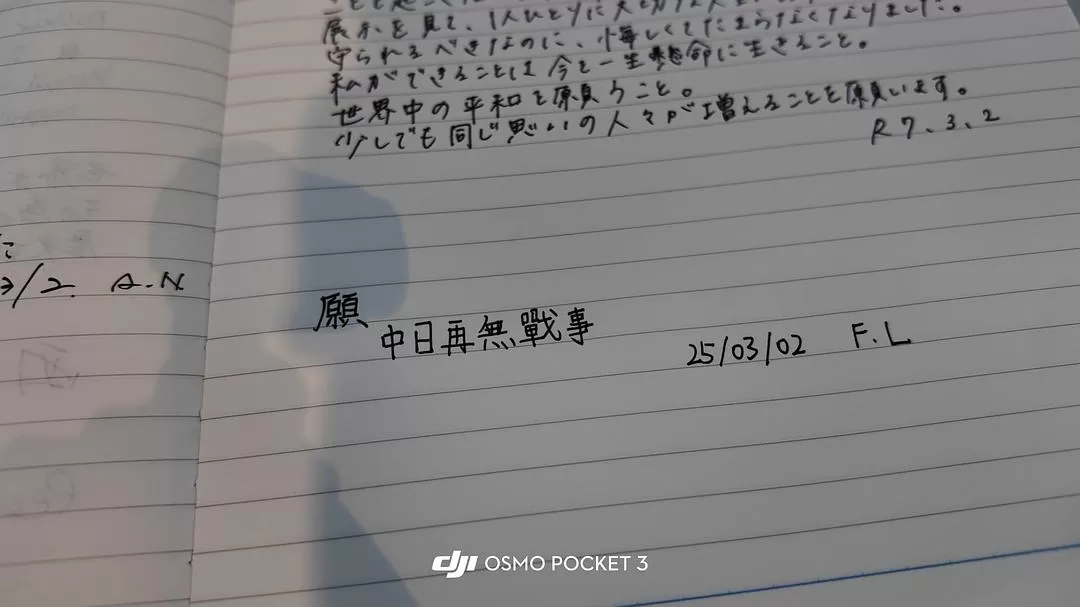 展示を見て、1人ひとりに大切な人
守られるべきなのに、悔しくてたまらなくなりました。
私ができることは今を一生懸命に生きること。
世界中の平和を願うこと。
少しでも同じ思いの人々が増えることを願います。
R7.3.2
3/2. A.N
願
中日再無戰事
25/03/02 F.L
dji OSMO POCKET 3